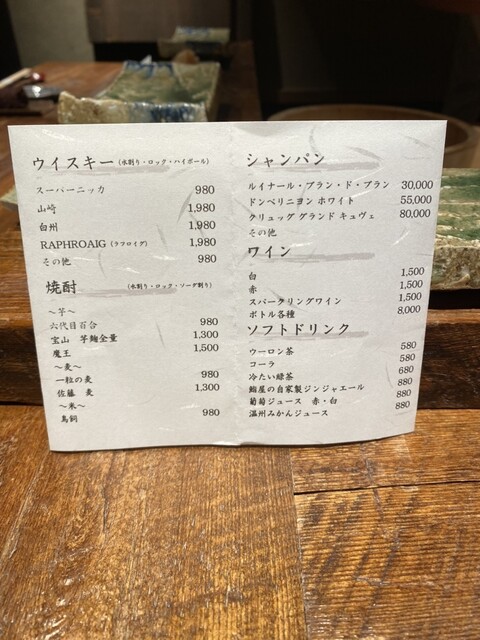 ウイスキー (水割り・ロック・ハイボール)
スーパーニッカ 980
山崎 1,980
白州 1,980
RAPHROAIG (ラフロイグ) 1,980
その他 980
焼酎 (水割り・ロック・ソーダ割り)
〜芋〜
六代目百合 980
宝山 芋麹全量 1,300
魔王 1,500
〜麦〜
一粒の麦 980
佐藤 麦 1,300
〜米〜
鳥飼 980
シャンパン
ルイナール・ブラン・ド・ブラン 30,000
ドンペリニヨン ホワイト 55,000
クリュッグ グランド キュヴェ 80,000
その他
ワイン
白 1,500
赤 1,500
スパークリングワイン 1,500
ボトル各種 8,000
ソフトドリンク
ウーロン茶 580
コーラ 580
冷たい緑茶 680
鮨屋の自家製ジンジャエール 880
葡萄ジュース 赤・白 880
温州みかんジュース 880